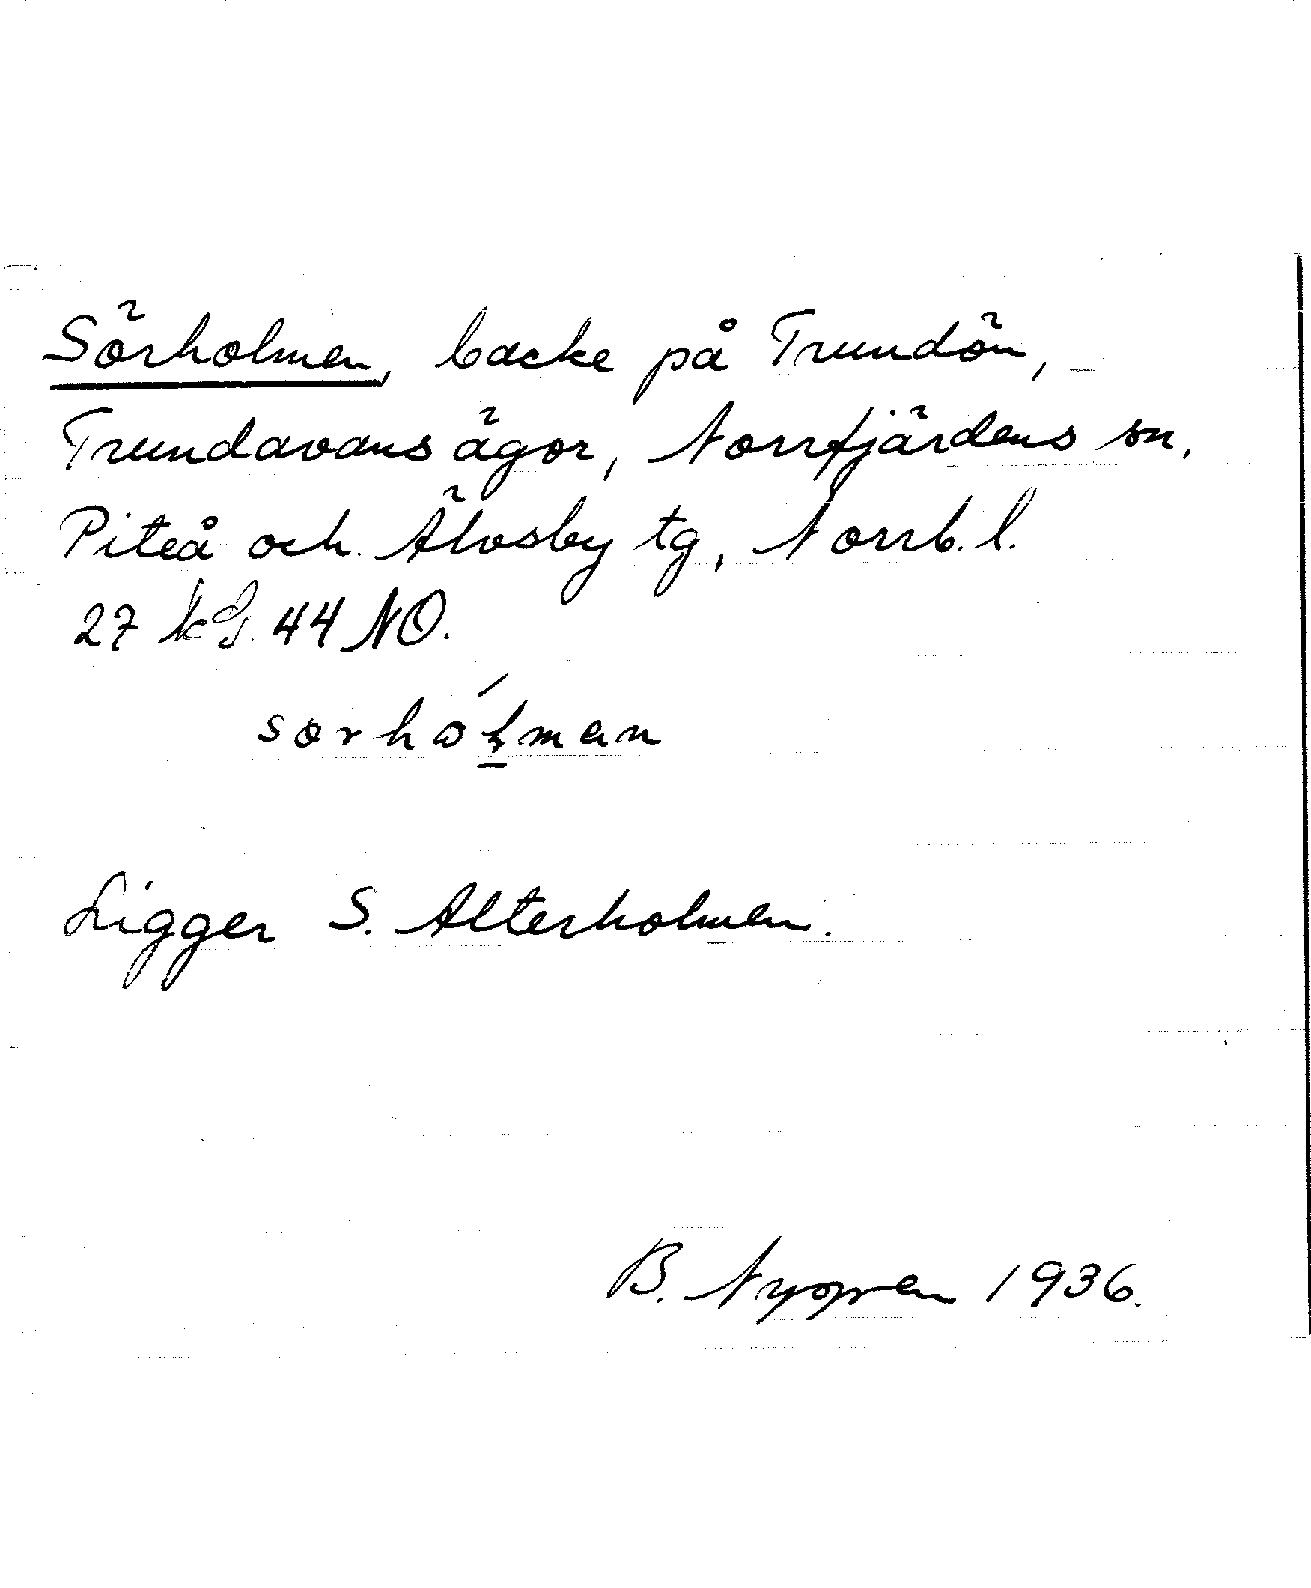 Sörholmen, backe på Trundön,
Trundavans ägor, Norrfjärdens sn,
Piteå och Älvsby tg, Norrb. l.
27 44 NO.
Ligger S. Alterholmen.
B. Nygren 1936.